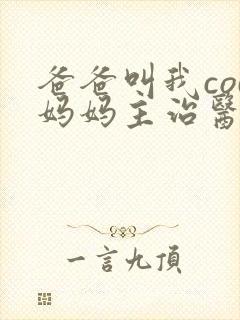 爸爸叫我co
妈妈主治醫
一言九頂